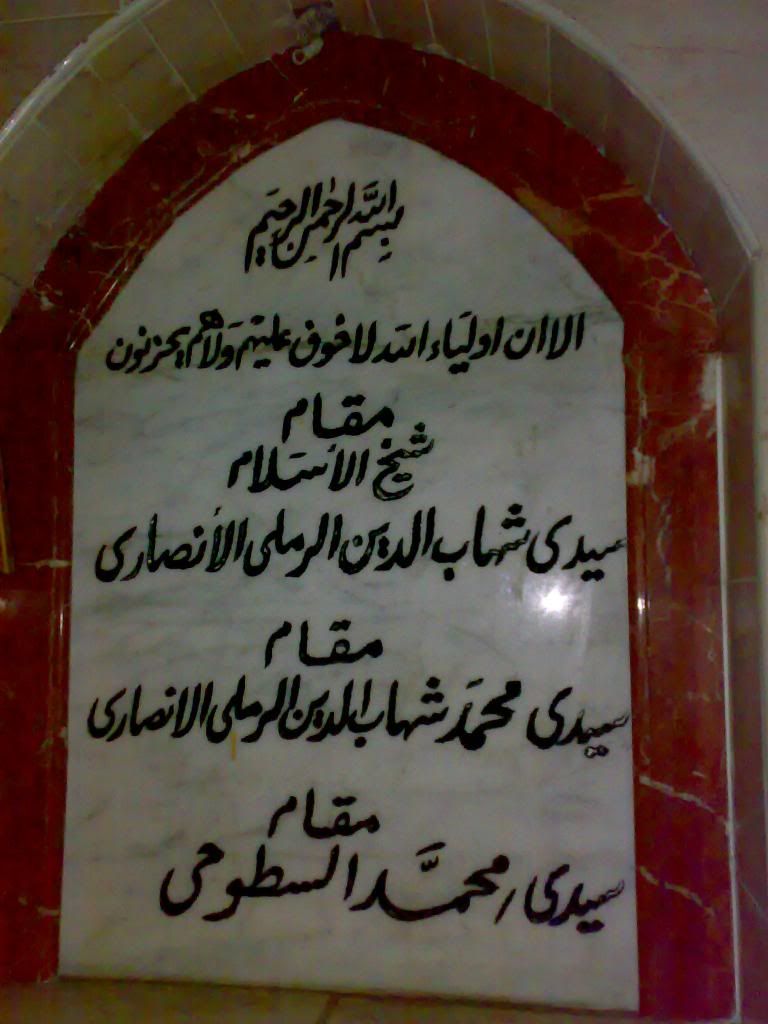 بسم الله الرحمن الرحيم
الا ان اولياء الله لا خوف عليهم ولا هم يحزنون
مقام
شيخ الأسلام
سيدى شهاب الدين الرملى الأنصارى
مقام
سيدى محمد شهاب الدين الرملى الانصارى
مقام
سيدى / محمد السطوحى